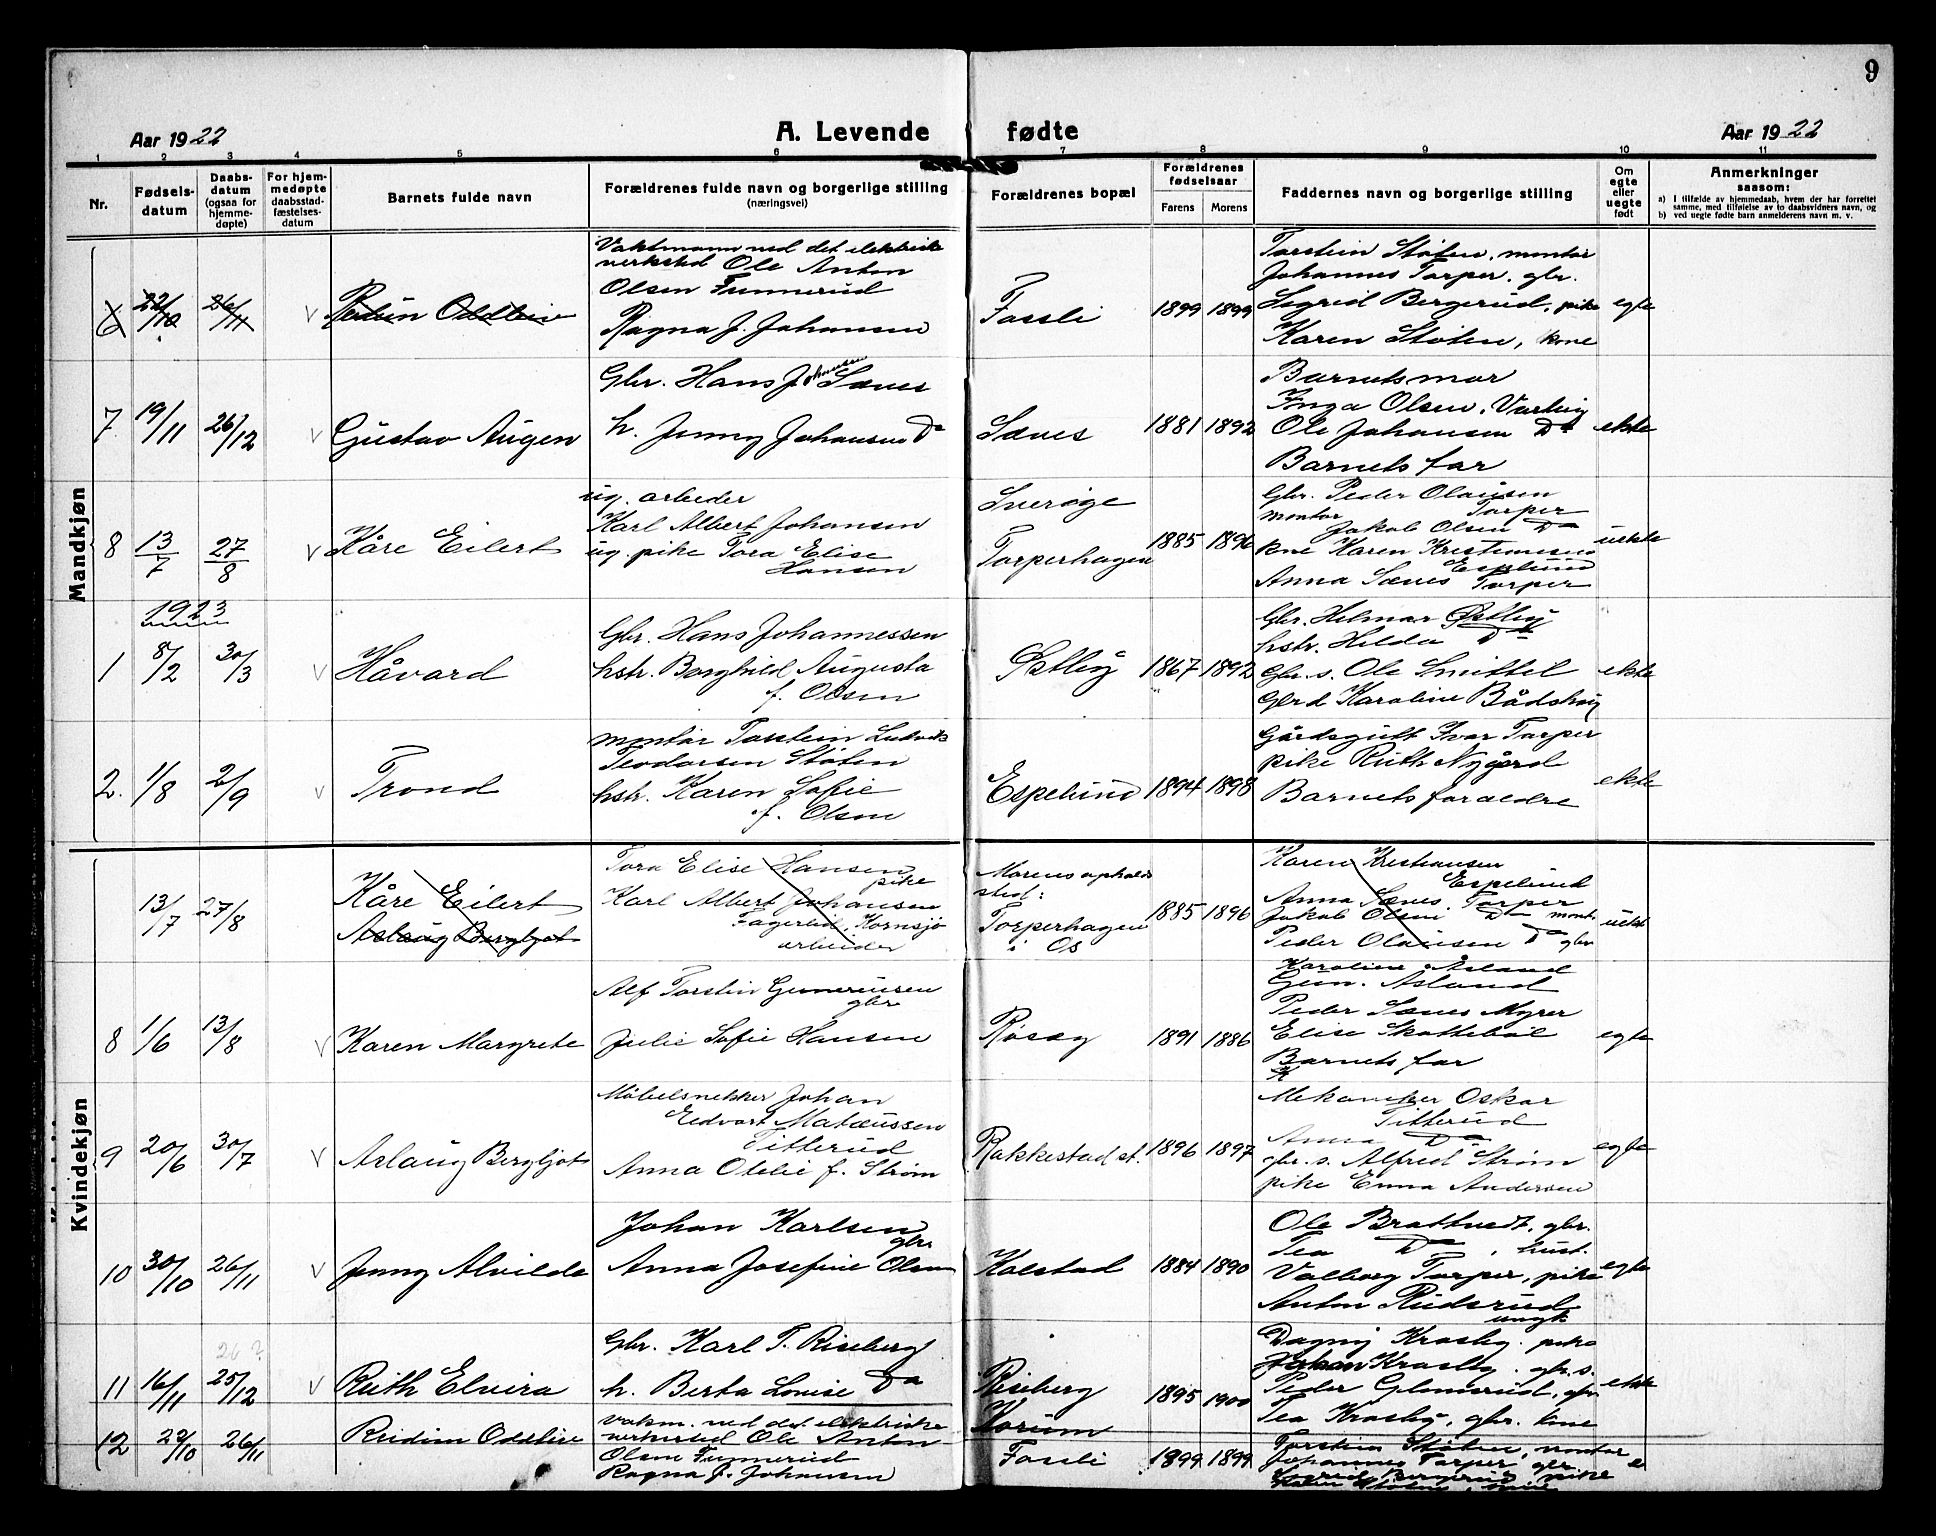 9
Aar 1922
A. Levende fødte
Aar 1922
1 2 3 4 5 6 7 8 9 10 11
Nr.
Fødsels-
datum
Daabs-
datum
(ogsaa for
hjemme-
døpte)
For hjem-
medøpte
daabsstad-
fæstelses-
datum
Barnets fulde navn
Forældrenes fulde navn og borgerlige stilling
(næringsvei)
Forældrenes bopæl
Forældrenes
fødselsaar
Farens Morens
Faddernes navn og borgerlige stilling
Om
egte
eller
uegte
født
Anmerkninger
saasom:
a) I tilfælde av hjemmedaab, hvem der har forrettet
samme, med tilføielse av to daabsvidners navn, og
b) ved uegte fødte barn anmelderens navn m. v.
Mandkjøn
6 22/10 26/11
Vaktmann ved det elektriske
verksted Ole Anton
Olsen Funnerud
Ragna J. Johansen
Fossli 1899 1899
Torstein Støten, montør
Johannes Torper, gbr.
Sigrid Bergerud, pike
Karen Støten, kone
egte
7 19/11 26/12 v Gustav Augen
Gbr. Hans Johansen Sæves
h. Jenny Johansen Do
Sæves 1881 1892
Barnets mor
Inga Olsen, Varteig
Ole Johansen Do
Barnets far
ekte
8 13/7 27/8 v Kåre Eilert
ug. arbeder
Karl Albert Johansen
ug. pike Tora Elise
Hansen
Sverige
Torperhagen
1885 1896
Gbr. Peder Olausen
Torper
montør Jakob Olsen Do
kne Karen Kristiansen
Espelund
Anna Sæves Torper
uekte
1923
1 8/2 30/3 v Håvard
Gbr. Hans Johannessen
hstr. Borghild Augusta
f. Olsen
Østby 1867 1892
Gbr. Helmar Østby
hstr. Hilda Do
Gbr. s. Ole Smittel
Gbr d Karoline Bådshaug
ekte
2. 1/8 2/9 v Trond
montør Torstein Ludvik
Teodorsen Støten
hstr. Karen Sofie
f. Olsen
Espelund 1894 1898
Gårdsgutt Ivar Torper
pike Ruth Nygård
Barnets foraeldre
ekte
Kvindekjøn
13/7 27/8
Kåre Eilert
Aslaug Bergljot
Tora Elise Hansen
pike
Karl Albert Johansen
Fagerlid, Kornsjø
arbeider
Morens ophold-
sted:
Torperhagen
i Os
1885 1896
Karen Kristiansen
Espelund
Anna Sæves Torper
Jakob Olsen Do mont.
Peder Olausen Do gbr
uekt
8 1/6 13/8 v Karen Margrete
Alf Torstein Guneriusen
gbr
Julie Sofie Hansen
Røsæg 1891 1886
Karoline Åsland
Gun. Åsland
Peder Sæves Myrer
Elise Skattebøl
Barnets far
egte
9 20/6 30/7 v Aslaug Bergljot
Møbelsnekker Johan
Eedvart Matæussen
Titterud
Anna Otelie f. Strøm
Rakkestad st. 1896 1897
Mekaniker Oskar
Titterud
Anna Do
gbr. s. Alfred Strøm
pike Emma Andersen
egte
10 30/10 26/11 v Jenny Alvilde
Johan Karlsen
gbr.
Anna Josefine Olsen
Kolstad 1884 1890
Ole Brattvedt, gbr.
Tea Do, hust.
Valborg Torper, pike
Anton Rudsrud
ungk
egte
26?
11 16/11 25/12 v Ruth Elvira
Gbr. Karl T. Riseberg
h. Berta Lovise Do
Riseberg
1895 1900
Dagny Krosby. pike
Johan Krosby. gbr. s.
Peder Glomsrud, gbr
Tea Krosby, gbr. kone
ekte
12 22/10 26/11
Vakm. ved det elektriske
verksted Ole Anton
Olsen Funnerud
Ragna J. Johansen
Fossli 1899 1899
Torstein Støten, montør
Johannes Torper, gbr.
Sigrid Bergerud, pike
Karen Støten, kone
e